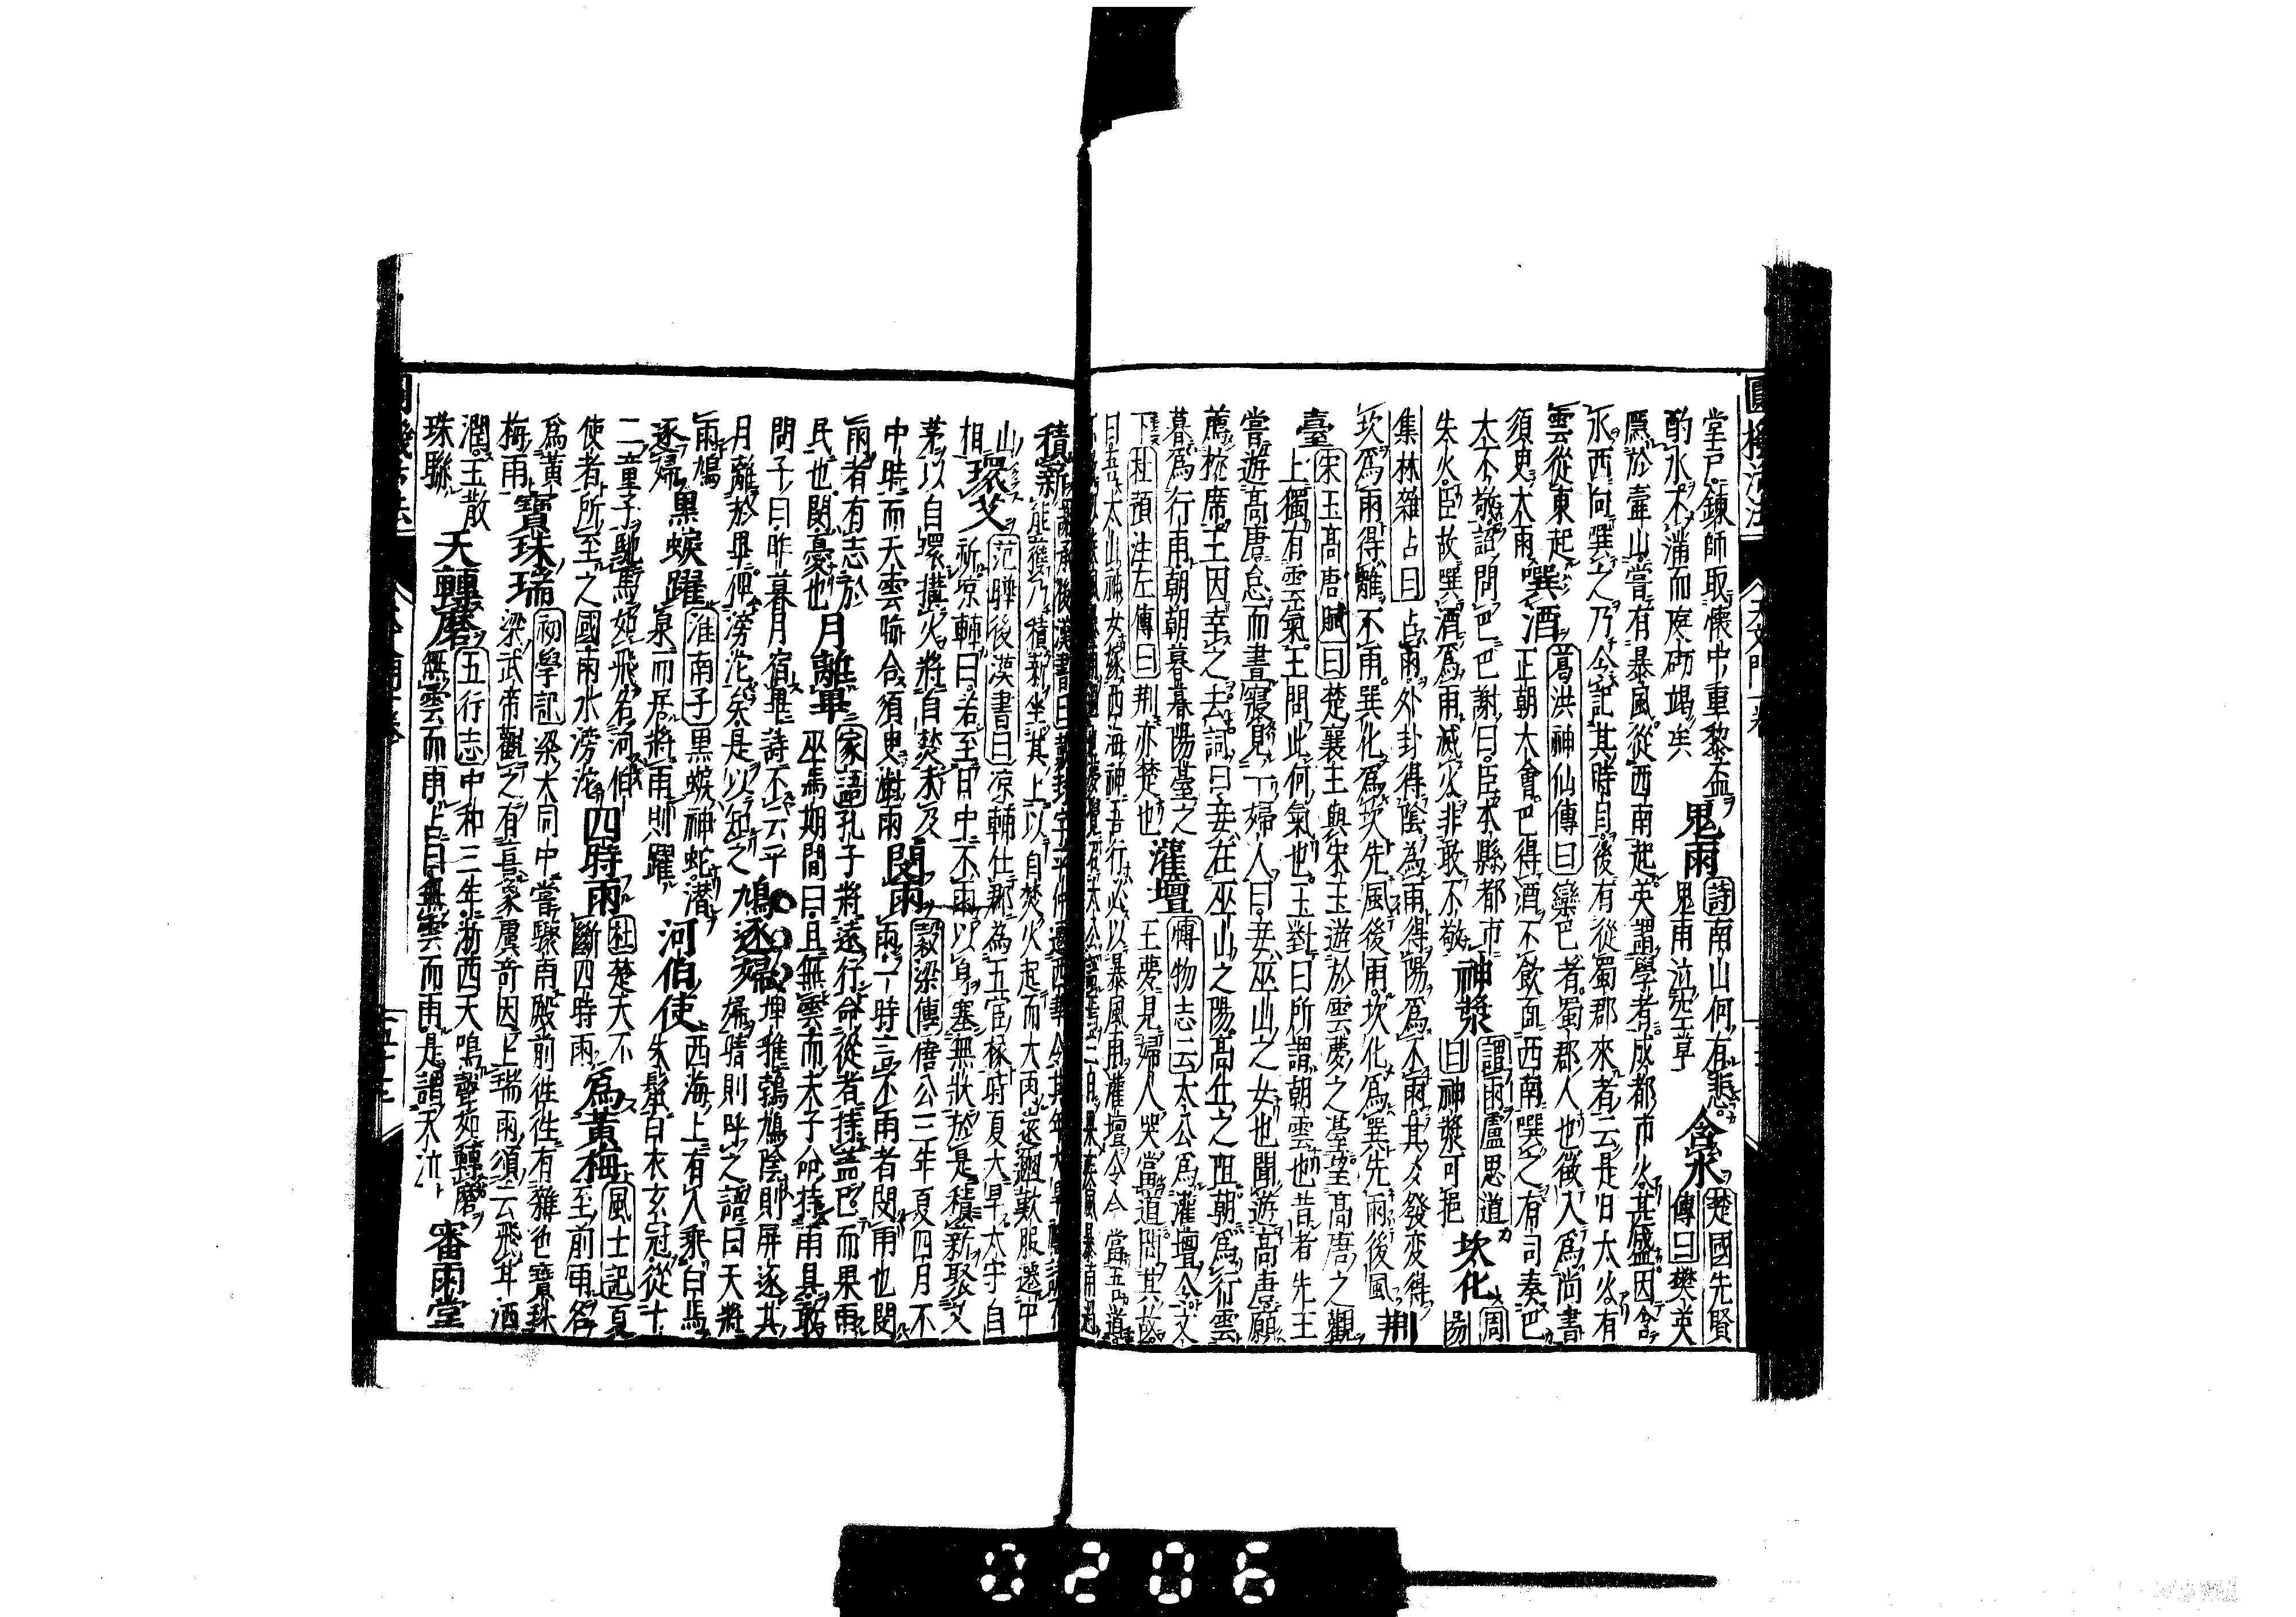 堂戸錬師取懷中車黎盃
酌水不滿而庭砌竭矣
鬼雨
詩南山何有悲
鬼雨泣空草
含水
楚國先賢
傳曰樊英
於壷山嘗有暴風從西南起英謂學者成都市火甚盛因含
水西向噀之乃令記其時日後有從蜀郡來者云是日大火有
雲從東起
須臾大雨
噀酒
葛洪神仙傳曰欒巴者蜀郡人也徵入爲尚書
正朝大會巴得酒不飲面西南噀之有司奏巴
大不敬詔問巴巴謝曰臣本縣都市
失火臣故噀酒爲雨滅火非敢不敬
神漿
謂雨盧思道
曰神漿可挹
坎化
周易
集林雜占曰占雨外卦得陰為雨得陽爲不雨其爻發変得
坎爲雨得離不雨巽化爲坎先風後雨坎化爲巽先雨後風
荆
臺
宋玉髙唐賦曰楚襄王與宋玉遊於雲夢之臺望髙唐之觀
上獨有雲氣王問此何氣也玉對曰所謂朝雲也昔者先王
嘗遊髙唐怠而晝寢見一婦人曰妾巫山之女也聞遊髙唐願
薦枕席王因幸之去詞曰妾在巫山之陽髙丘之阻朝爲行雲
暮爲行雨朝朝暮暮陽臺之
下杜預注左傳曰荆亦楚也
灌壇
博物志云太公爲灌壇令文
王夢見婦人哭當道問其故
曰吾太山神女嫁西海神吾行必以暴風雨灌壇令當吾道
積薪
能獲乃積薪坐其上以自焚火起而大雨遠近歎服遷中
山相
環艾
范曄後漢書曰凉輔仕郡為五官掾時夏大旱太守自
祈凉輔曰若至日中不雨以身塞無狀於是積薪聚艾
茅以自環搆火將自焚未及
中時而天雲晦合須臾澍雨
閔雨
穀梁傳僖公三年夏四月不
雨一時言不雨者閔雨也閔
雨者有志於
民也閔憂也
月離畢
家語孔子將遠行命從者持盖巳而果雨
巫馬期問曰且無雲而夫子命持雨具敢
問子曰昨暮月宿畢詩不云乎
月離於畢俾滂沱矣是以知之
鳩逐婦
埤雅鶉鳩陰則屏逐其
婦晴則呼之語曰天將
雨鳩
逐婦
黒蜧躍
淮南子黒蜧神蛇潜
泉而居將雨則躍
河伯使
西海上有人乘白馬
朱鬣白衣玄冠從十
二童子馳馬如飛名河伯
使者所至之國雨水滂沱
四時雨
杜楚天不
斷四時雨
爲黃梅
風土記夏
至前雨名
爲黃
梅雨
寶珠瑞
初學記梁大同中嘗驟雨殿前徃徃有雜色寶珠
梁武帝觀之有喜家虞竒因上瑞雨頌云飛耳洒
潤玉散
珠聯
天轉磨
五行志中和三年浙西天鳴聲如轉磨
無雲而雨占曰無雲而雨是謂天泣
審雨堂
0206